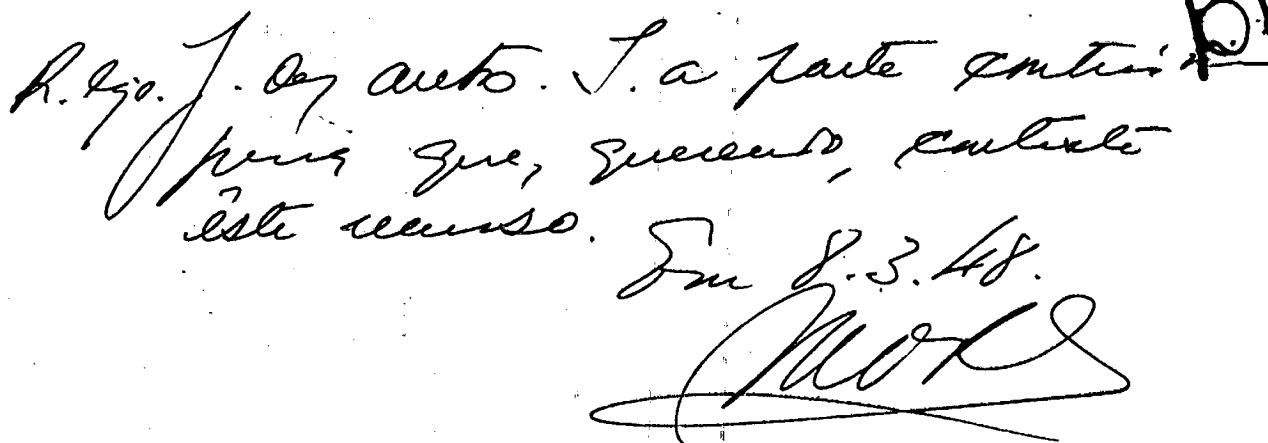 R. hje. J. aos autos. I. a parte contrária
para que, querendo, conteste
êste recurso.
Em 8.3.48.